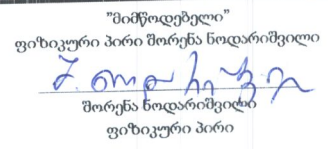 "მიმწოდებელი"
ფიზიკური პირი შორენა ნოდარიშვილი
შორენა ნოდარიშვილი
ფიზიკური პირი